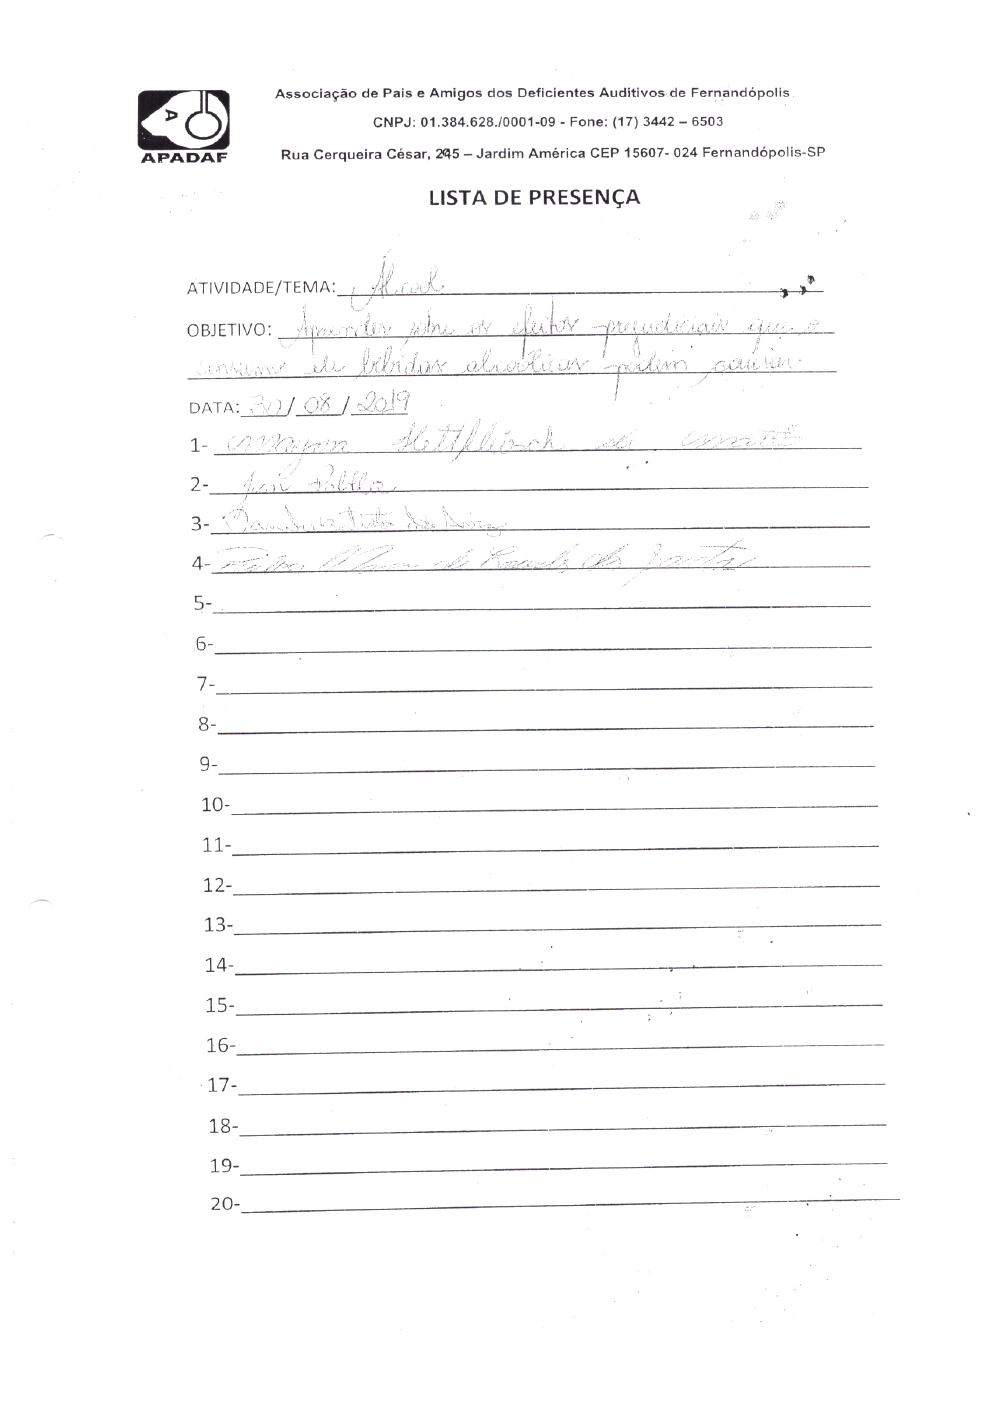 Associação de Pais e Amigos dos Deficientes Auditivos de Fernandópolis
CNPJ: 01.384.628./0001-09 - Fone: (17) 3442 – 6503
APADAF
Rua Cerqueira César, 245 – Jardim América CEP 15607- 024 Fernandópolis-SP
LISTA DE PRESENÇA
ATIVIDADE/TEMA: Álcool
OBJETIVO: Aprender sobre os efeitos prejudiciais que o
consumo de bebidas alcoólicas podem causar.
DATA: 30/08/2019
1-
2-
3-
4- dos Santos
5-
6-
7-
8-
9-
10-
11-
12-
13-
14-
15-
16-
17-
18-
19-
20-